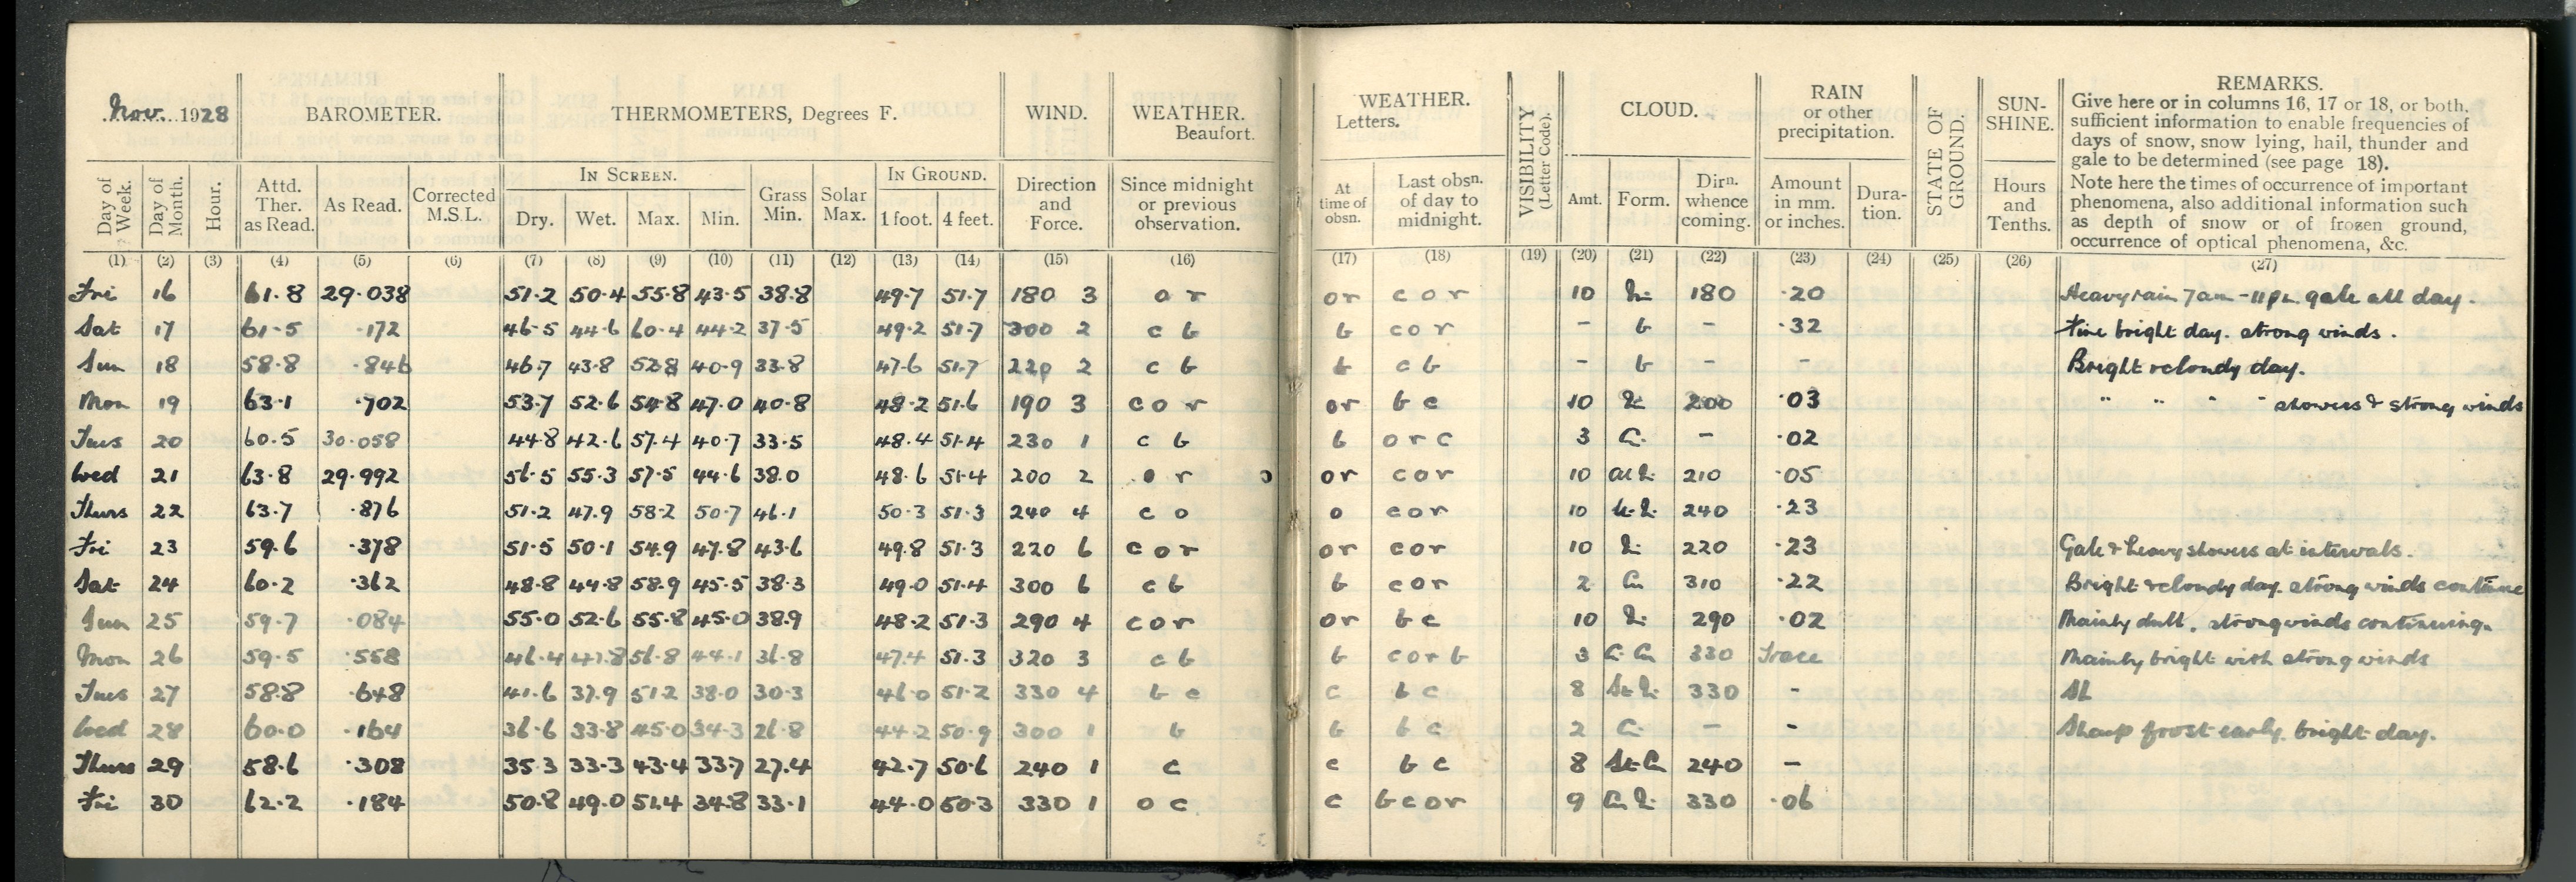 Nov. 1928 BAROMETER. THERMOMETERS, Degrees F. WIND. WEATHER. Beaufort. WEATHER. Letters. VISIBILITY (Letter Code). CLOUD. RAIN or other precipitation. STATE OF GROUND. SUN-SHINE. REMARKS.
Give here or in columns 16, 17 or 18, or both,
sufficient information to enable frequencies of
days of snow, snow lying, hail, thunder and
gale to be determined (see page 18).
Note here the times of occurrence of important
phenomena, also additional information such
as depth of snow or of frozen ground,
occurrence of optical phenomena, &c.
IN SCREEN. IN GROUND.
Day of Week. Day of Month. Hour. Attd. Ther. as Read. As Read. Corrected M.S.L. Dry. Wet. Max. Min. Grass Min. Solar Max. 1 foot. 4 feet. Direction and Force. Since midnight or previous observation. At time of obsn. Last obsn. of day to midnight. Amt. Form. Dirn. whence coming. Amount in mm. or inches. Dura-tion. Hours and Tenths.
(1) (2) (3) (4) (5) (6) (7) (8) (9) (10) (11) (12) (13) (14) (15) (16) (17) (18) (19) (20) (21) (22) (23) (24) (25) (26) (27)
Fri 16 61.8 29.038 51.2 50.4 55.8 43.5 38.8 49.7 51.7 180 3 o r or c o r 10 180 .20 Heavy rain 7am - 11pm gale all day.
Sat 17 61.5 .172 46.5 44.6 60.4 44.2 37.5 49.2 51.7 300 2 c b b c o r - b - .32 Fine bright day. strong winds.
Sun 18 58.8 .846 46.7 43.8 52.8 40.9 33.8 47.6 51.7 220 2 c b b c b - b - - Bright & cloudy day.
Mon 19 63.1 .702 53.7 52.6 54.8 47.0 40.8 48.2 51.6 190 3 c o r or b c 10 200 .03 " " " " showers & strong winds
Tues 20 60.5 30.058 44.8 42.6 57.4 40.7 33.5 48.4 51.4 230 1 c b b o r c 3 Ci. - .02
Wed 21 63.8 29.992 56.5 55.3 57.5 44.6 38.0 48.6 51.4 200 2 o r or c o r 10 210 .05
Thurs 22 63.7 .876 51.2 47.9 58.2 50.7 46.1 50.3 51.3 240 4 c o o c o r 10 240 .23
Fri 23 59.6 .378 51.5 50.1 54.9 47.8 43.6 49.8 51.3 220 6 c o r or c o r 10 220 .23 Gale & heavy showers at intervals.
Sat 24 60.2 .362 48.8 44.8 58.9 45.5 38.3 49.0 51.4 300 6 c b b c o r 2 Cu 310 .22 Bright & cloudy day. strong winds continue
Sun 25 59.7 .084 55.0 52.6 55.8 45.0 38.9 48.2 51.3 290 4 c o r or b c 10 290 .02 Mainly dull. strong winds continuing.
Mon 26 59.5 .558 46.4 56.8 44.1 36.8 47.4 51.3 320 3 c b b c o r b 3 Ci Cu 330 Trace Mainly bright with strong winds
Tues 27 58.8 .648 41.6 37.9 51.2 38.0 30.3 46.0 51.2 330 4 b c c b c 8 330 -
Wed 28 60.0 .164 36.6 33.8 45.0 34.3 26.8 44.2 50.9 300 1 b b b c 2 Ci. - - Sharp frost early. bright day.
Thurs 29 58.6 .308 35.3 33.3 43.4 33.7 27.4 42.7 50.6 240 1 c c b c 8 St-Cu 240 -
Fri 30 62.2 .184 50.8 49.0 51.4 34.8 33.1 44.0 50.3 330 1 o c c b c o r 9 330 .06